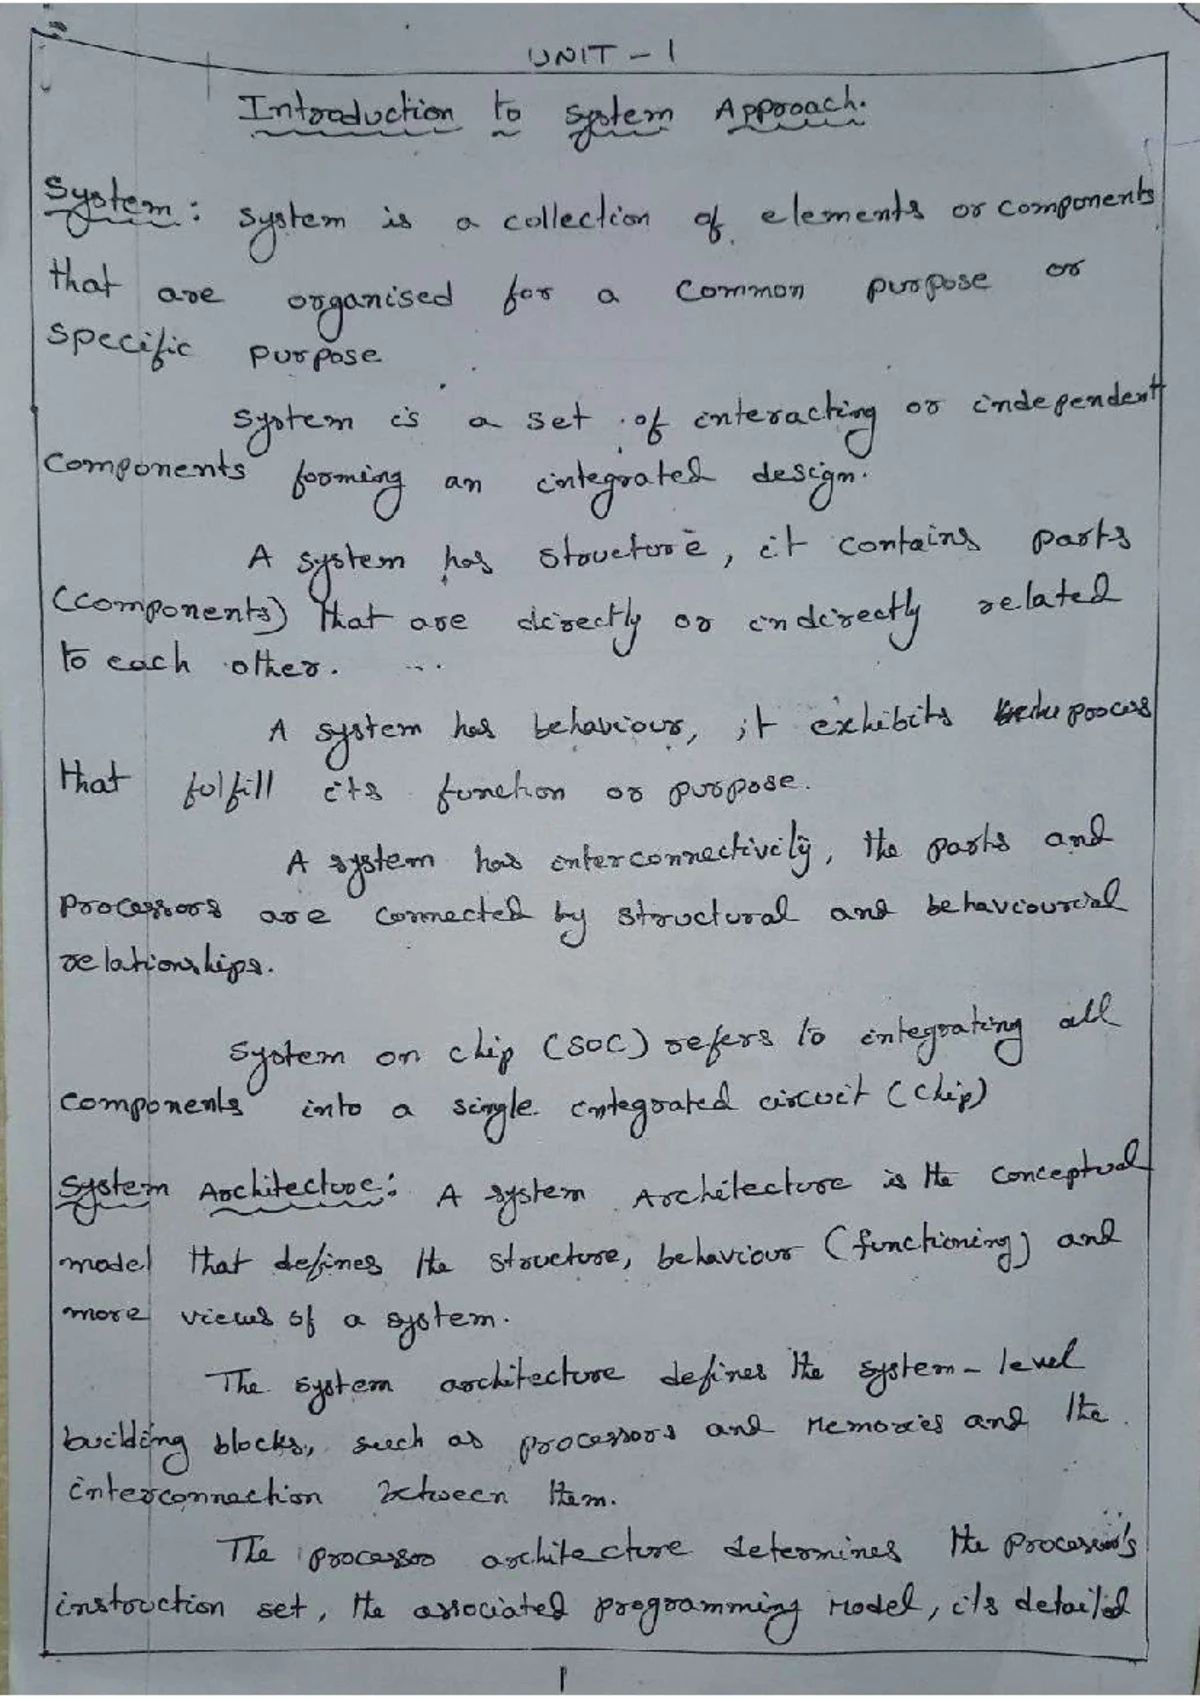 UNIT - 1
Introduction to system Approach.
System: system is a collection of elements or components
that are organised for a common purpose or
specific purpose
system is a set of interacting or independent
components forming an integrated design.
A system has structure, it contains parts
(components) that are directly or indirectly related
to each other.
A system has behaviour, it exhibits process
that fulfill its function or purpose.
A system has interconnectivity, the parts and
processors are connected by structural and behaviourial
relationships.
System on chip (SOC) refers to integrating all
components into a single integrated circuit (chip)
System Architecture: A system Architecture is the conceptual
model that defines the structure, behaviour (functioning) and
more views of a system.
The system architecture defines the system-level
building blocks, such as processors and memories and the
interconnection between them.
The processor architecture determines the processor's
instruction set, the associated programming model, its detailed
1